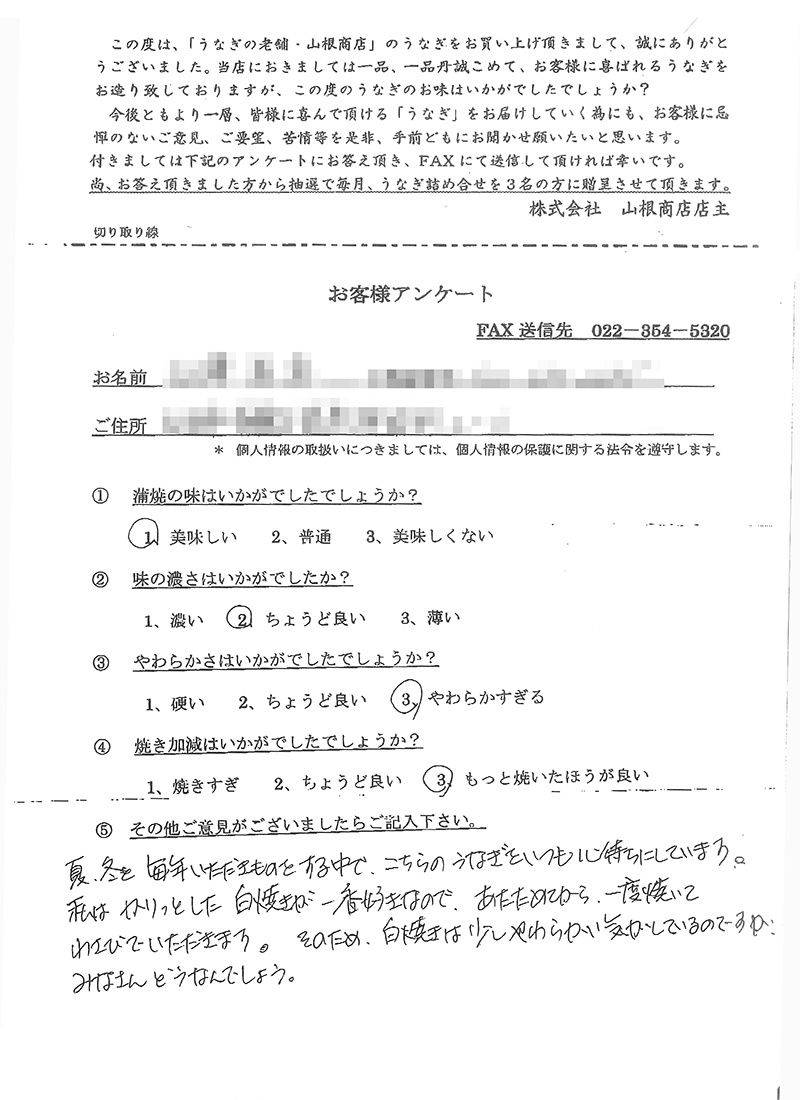 この度は、「うなぎの老舗・山根商店」のうなぎをお買い上げ頂きまして、誠にありがと
うございました。当店におきましては一品、一品丹誠こめて、お客様に喜ばれるうなぎを
お造り致しておりますが、この度のうなぎのお味はいかがでしたでしょうか?
今後ともより一層、皆様に喜んで頂ける「うなぎ」をお届けしていく為にも、お客様に忌
憚のないご意見、ご要望、苦情等を是非、手前どもにお聞かせ願いたいと思います。
付きましては下記のアンケートにお答え頂き、FAXにて送信して頂ければ幸いです。
尚、お答え頂きました方から抽選で毎月、うなぎ詰め合せを3名の方に贈呈させて頂きます。
株式会社 山根商店店主
切り取り線
お客様アンケート
FAX 送信先 022-354-5320
お名前
ご住所
* 個人情報の取扱いにつきましては、個人情報の保護に関する法令を遵守します。
① 蒲焼の味はいかがでしたでしょうか?
1、美味しい 2、普通 3、美味しくない
② 味の濃さはいかがでしたか?
1、濃い 2、ちょうど良い 3、薄い
③ やわらかさはいかがでしたでしょうか?
1、硬い 2、ちょうど良い 3、やわらかすぎる
④ 焼き加減はいかがでしたでしょうか?
1、焼きすぎ 2、ちょうど良い 3、もっと焼いたほうが良い
⑤ その他ご意見がございましたらご記入下さい。
夏、冬と毎年いただきものをする中で、こちらのうなぎをいつも心待ちにしています。
私はカリっとした白焼きが一番好きなので、あたためてから、一度焼いて
わさびでいただきます。そのため、白焼きは少しやわらかい気がしているのですが、
みなさんどうなんでしょう。